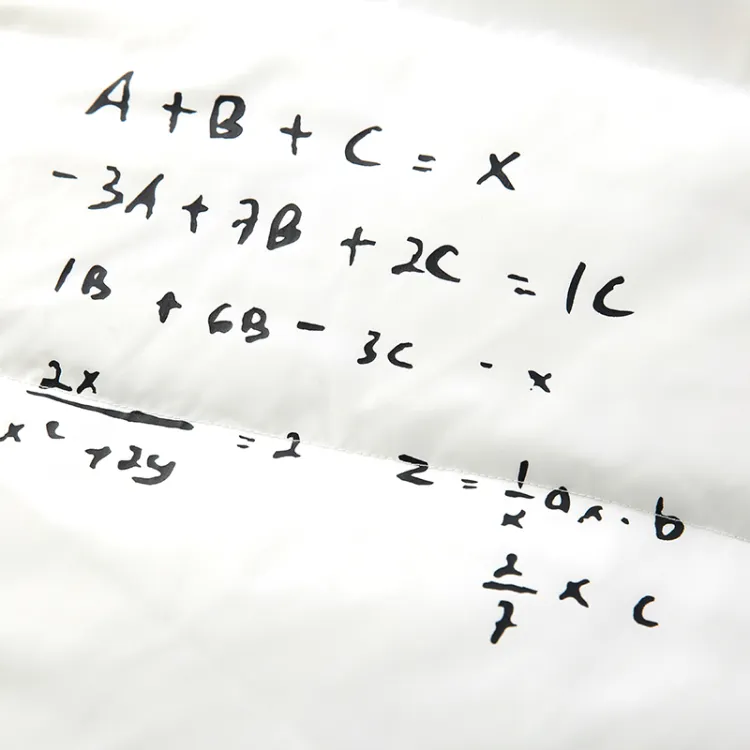 A + B + C = x
- 3A + 7B + 2C = 1C
1B + 6B - 3C - x
2x / x² + 2y = 2
z = 1/x ax · b
2/7 x c